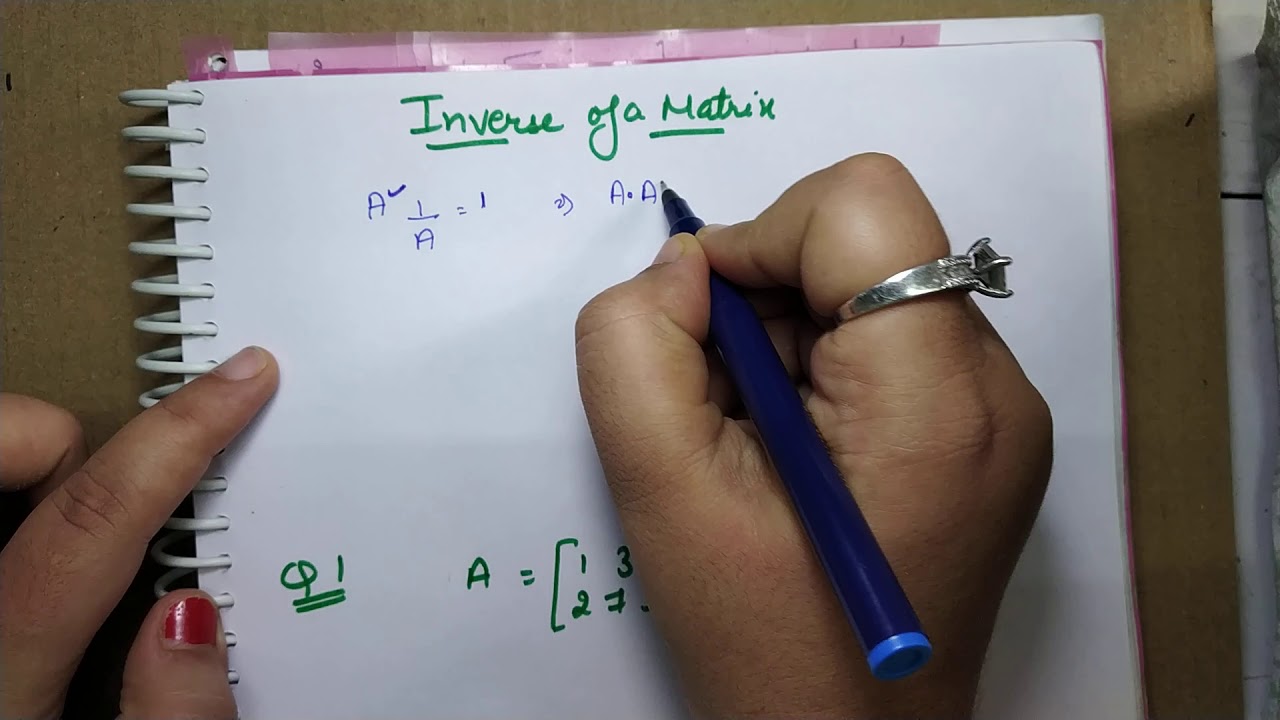 Inverse of a Matrix
A 1/A = 1 ⇒ A·A
Q1 A = [1 3
2 7